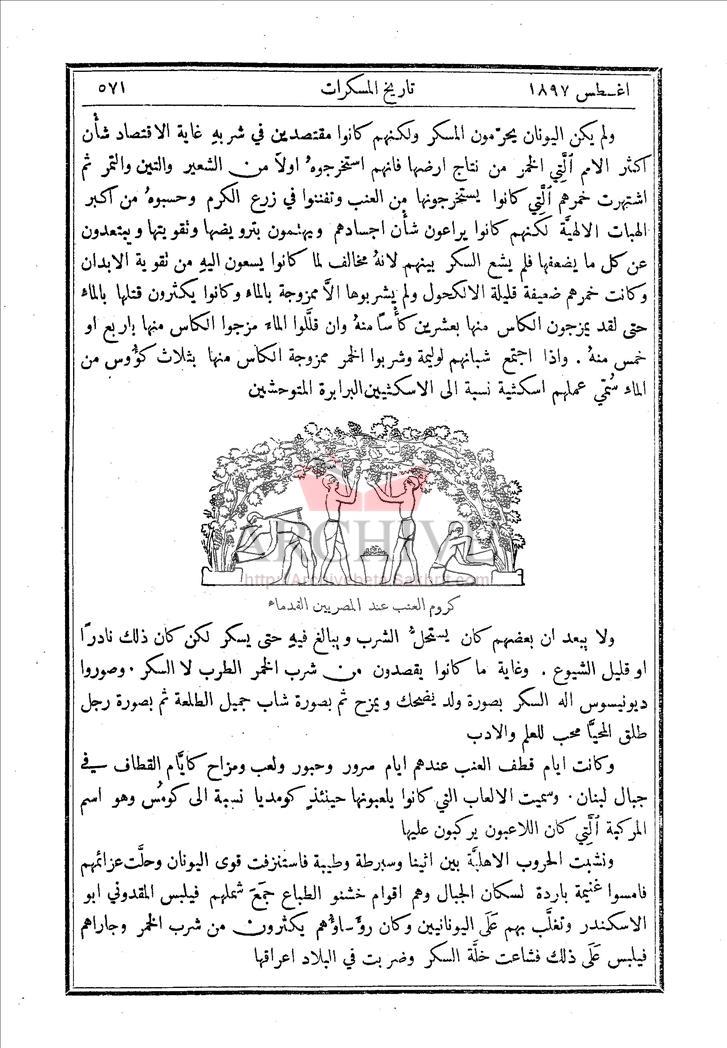 اغسطس ١٨٩٧ تاريخ المسكرات ٥٧١
ولم يكن اليونان يحرّمون المسكر ولكنهم كانوا مقتصدين في شربهِ غاية الاقتصاد شأن
اكثر الامم ٱلَّتِي الخمر من نتاج ارضها فانهم استخرجوهُ اولاً من الشعير والتين والتمر ثم
اشتهرت خمرهم ٱلَّتِي كانوا يستخرجونها من العنب وتفننوا في زرع الكرم وحسبوهُ من اكبر
الهبات الالهيَّة لكنهم كانوا يراعون شأن اجسادهم ويهتمون بترويضها وتقويتها ويبتعدون
عن كل ما يضعفها فلم يشع السكر بينهم لانهُ مخالف لما كانوا يسعون اليهِ من تقوية الابدان
وكانت خمرهم ضعيفة قليلة الالكحول ولم يشربوها الاَّ ممزوجة بالماء وكانوا يكثرون قتلها بالماء
حتى لقد يمزجون الكاس منها بعشرين كأسًا منهُ وان قلَّلوا الماء مزجوا الكاس منها باربع او
خمس منهُ . واذا اجتمع شبانهم لوليمة وشربوا الخمر ممزوجة الكاس منها بثلاث كؤوس من
الماء سُمّي عملهم اسكثية نسبة الى الاسكثيين البرابرة المتوحشين
ARCHIVE
http://Archivebeta.Sakhrit.com
كروم العنب عند المصريين القدماء
ولا يبعد ان بعضهم كان يستحلُّ الشرب ويبالغ فيهِ حتى يسكر لكن كان ذلك نادرًا
او قليل الشيوع . وغاية ما كانوا يقصدون من شرب الخمر الطرب لا السكر . وصوروا
ديونيسوس اله السكر بصورة ولد يضحك ويمزح ثم بصورة شاب جميل الطلعة ثم بصورة رجل
طلق المحيَّا محب للعلم والادب
وكانت ايام قطف العنب عندهم ايام سرور وحبور ولعب ومزاح كايَّام القطاف في
جبال لبنان . وسميت الالعاب التي كانوا يلعبونها حينئذٍ كومديا نسبة الى كومُس وهو اسم
المركبة ٱلَّتِي كان اللاعبون يركبون عليها
ونشبت الحروب الاهليَّة بين اثينا وسبرطة وطيبة فاستنزفت قوى اليونان وحلَّت عزائمهم
فامسوا غنيمة باردة لسكان الجبال وهم اقوام خشنو الطباع جمَعَ شملهم فيلبس المقدوني ابو
الاسكندر وتغلَّب بهم عَلَى اليونانيين وكان رؤساؤهم يكثرون من شرب الخمر وجاراهم
فيلبس عَلَى ذلك فشاعت خلَّة السكر وضربت في البلاد اعراقها